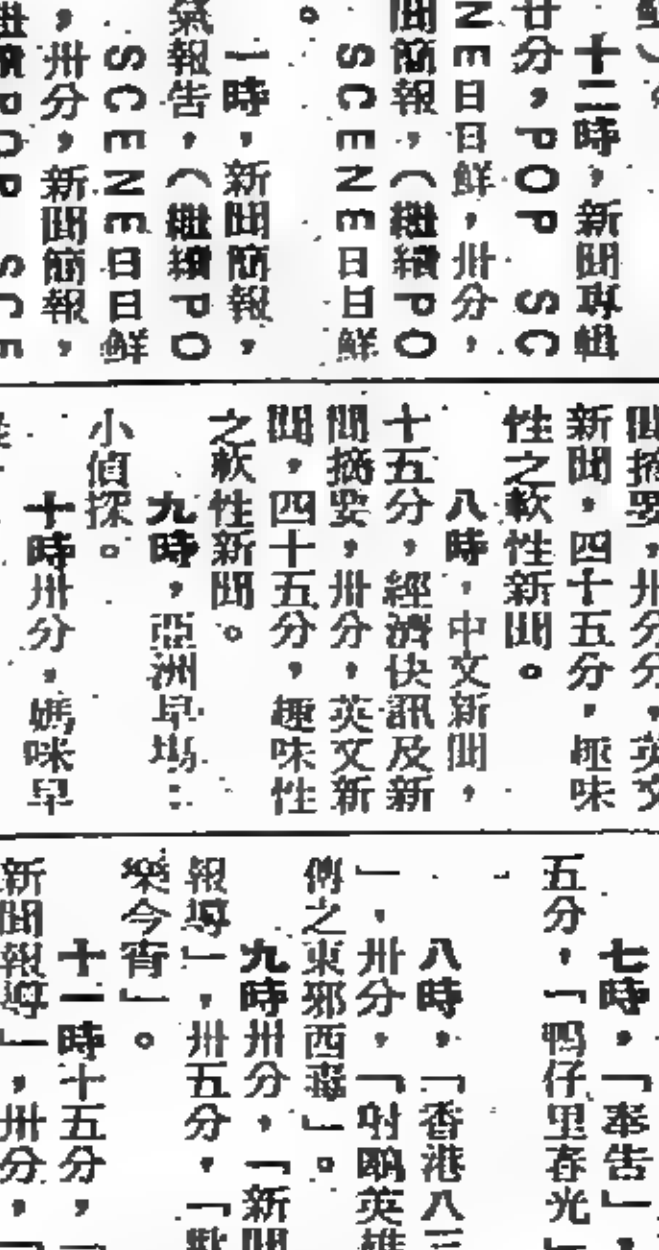 十二時，新聞專輯
廿分，POP SC
NE日日鮮，卅分，
聞簡報，（繼續PO
SCENE日日鮮
。
一時，新聞簡報，
氣報告，（繼續PO
SCENE日日鮮
，卅分，新聞簡報，
聞摘要，卅分，英文
新聞，四十五分，趣味
性之軟性新聞。
八時，中文新聞，
十五分，經濟快訊及新
聞摘要，卅分，英文新
聞，四十五分，趣味性
之軟性新聞。
九時，亞洲早場：
小偵探。
十時卅分，媽咪早
七時，「奉告」，
五分，「鴨仔里春光」
八時，「香港八三
」，卅分，「射鵰英雄
傳之東邪西毒」。
九時卅分，「新聞
報導」，卅五分，「歡
樂今宵」。
十一時十五分，「
新聞報導」，卅分，「